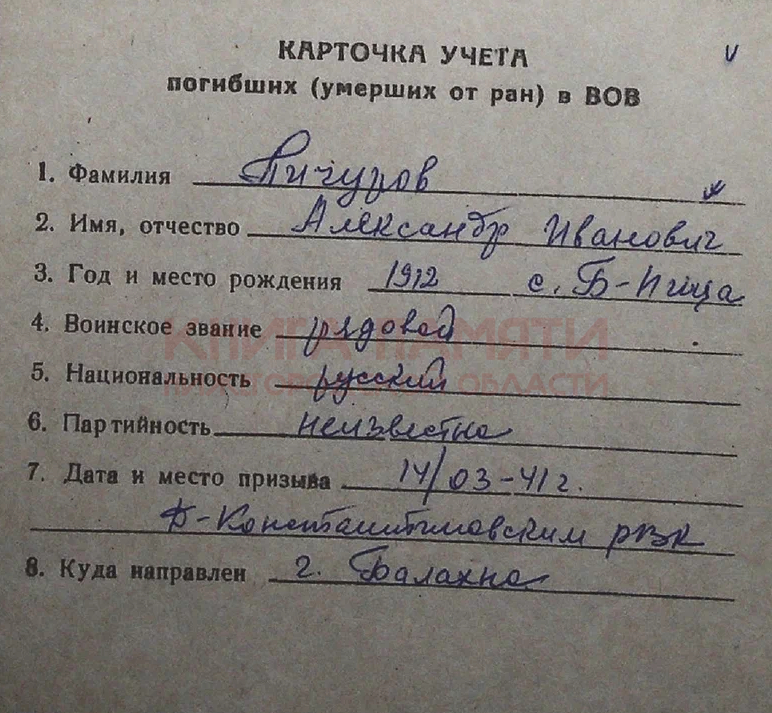 КАРТОЧКА УЧЕТА
погибших (умерших от ран) в ВОВ
1. Фамилия Пичуров
2. Имя, отчество Александр Иванович
3. Год и место рождения 1912 с. Б-Якша
4. Воинское звание рядовой
5. Национальность русский
КНИГА ПАМЯТИ
НИЖЕГОРОДСКОЙ ОБЛАСТИ
6. Партийность неизвестно
7. Дата и место призыва 14/03-41г.
Д-Константиновским РВК
8. Куда направлен г. Балахна